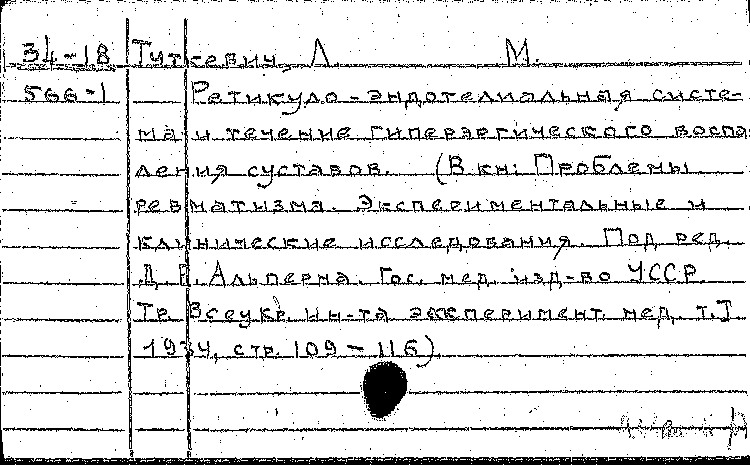 34-18 Туткевич, Л. М.
566-1 Ретикуло-эндотелиальная систе-
ма и течение гиперэргического воспа
ления суставов. (В кн: Проблемы
ревматизма. Экспериментальные и
клинические исследования. Под ред.
Д. Е. Альперна. Гос. мед. изд-во УССР
Тр. Всеукр. ин-та эксперимент. мед. т. I.
1934, стр. 109-116).